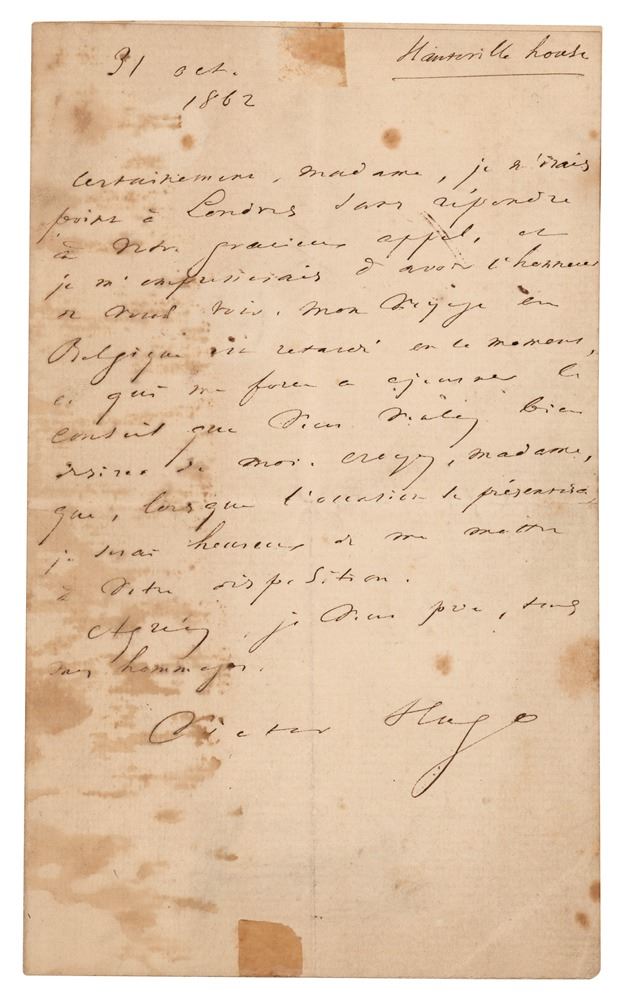 31 oct.
1862
Hauteville house
Certainement, madame, je n'irais
point à Londres sans répondre
à votre gracieux appel, et
je m'empresserais d'avoir l'honneur
de vous voir. Mon voyage en
Belgique est retardé en ce moment,
ce qui me force à ajourner le
conseil que vous voulez bien
désirer de moi. Croyez, madame,
que, lorsque l'occasion se présentera,
je serai heureux de me mettre
à votre disposition.
Agréez, je vous prie, tous
mes hommages.
Victor Hugo